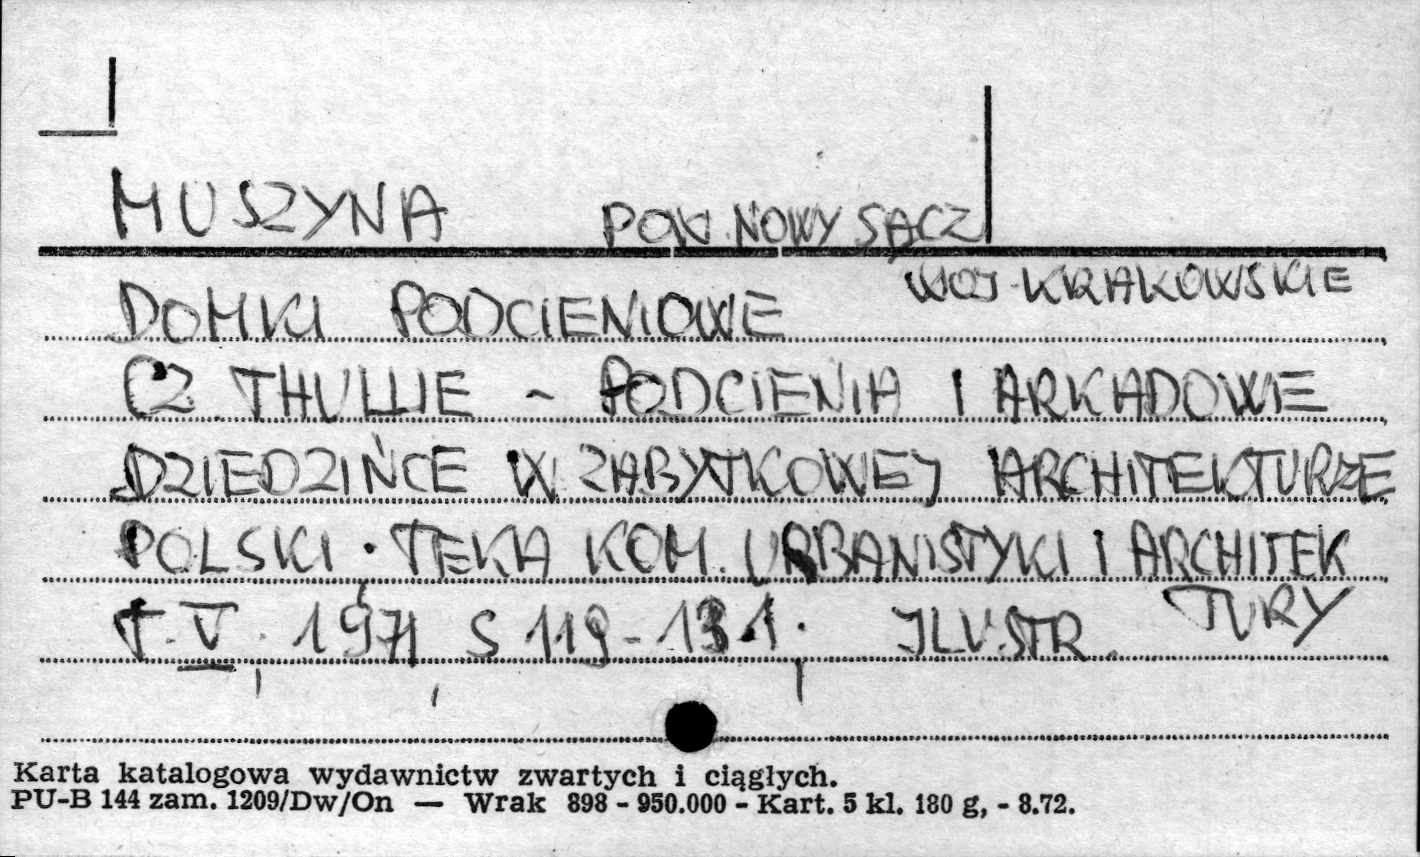 MUSZYNA POW. NOWY SĄCZ
WOJ. KRAKOWSKIE
DOMKI PODCIENIOWE
CZ. THULLIE ~ PODCIENIA I ARKADOWE
DZIEDZIŃCE W ZABYTKOWEJ ARCHITEKTURZE
POLSKI. TEKA KOM. URBANISTYKI I ARCHITEK
TURY
T. V. 1971 S 119-131. ILUSTR.
Karta katalogowa wydawnictw zwartych i ciągłych.
PU-B 144 zam. 1209/Dw/On — Wrak 898 - 950.000 - Kart. 5 kl. 180 g, - 8.72.